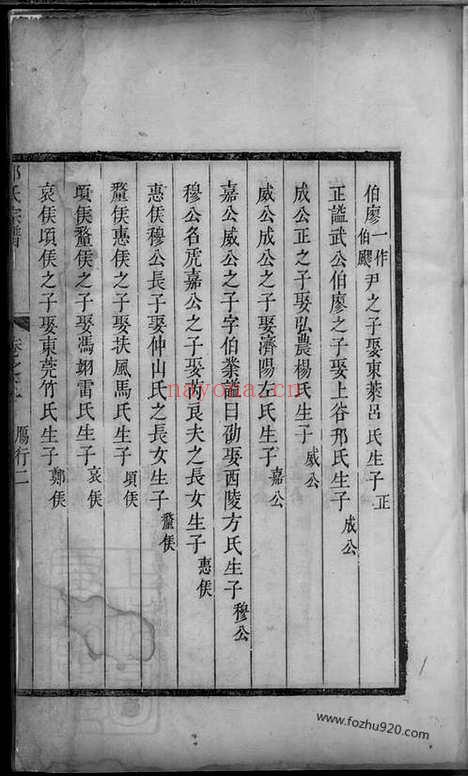 伯廖一作伯飂尹之子娶東萊呂氏生子正
正謚武公伯廖之子娶上谷邢氏生子成公
成公正之子娶弘農楊氏生子威公
威公成公之子娶濟陽左氏生子嘉公
嘉公威公之子字伯業謚曰勛娶西陵方氏生子穆公
穆公名虎嘉公之子娶良夫之長女生子惠侯
惠侯穆公長子娶仲山氏之長女生子釐侯
釐侯惠侯之子娶扶風馬氏生子頃侯
頃侯釐侯之子娶馮翊雷氏生子哀侯
哀侯頃侯之子娶東莞竹氏生子鄭侯
氏宗譜
卷之
鴈行二
nayona.cn
www.fozhu920.com